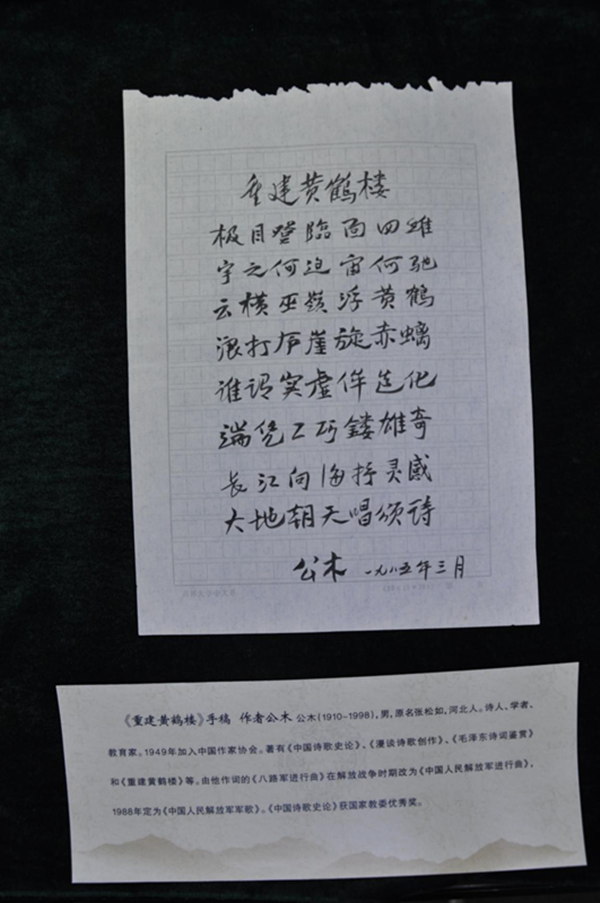 重建黄鹤楼
极目登臨面四维
宇之何迫宙何驰
云横巫嶺浮黄鹤
浪打庐崖旋赤螭
谁谓实虚侔造化
端凭工巧鏤雄奇
长江向海抒灵感
大地朝天唱颂诗
公木 一九八五年三月
《重建黄鹤楼》手稿 作者公木 公木(1910-1998),男,原名张松如,河北人。诗人、学者、
教育家。1949年加入中国作家协会。著有《中国诗歌史论》、《漫谈诗歌创作》、《毛泽东诗词鉴赏》
和《重建黄鹤楼》等。由他作词的《八路军进行曲》在解放战争时期改为《中国人民解放军进行曲》,
1988年定为《中国人民解放军军歌》。《中国诗歌史论》获国家教委优秀奖。